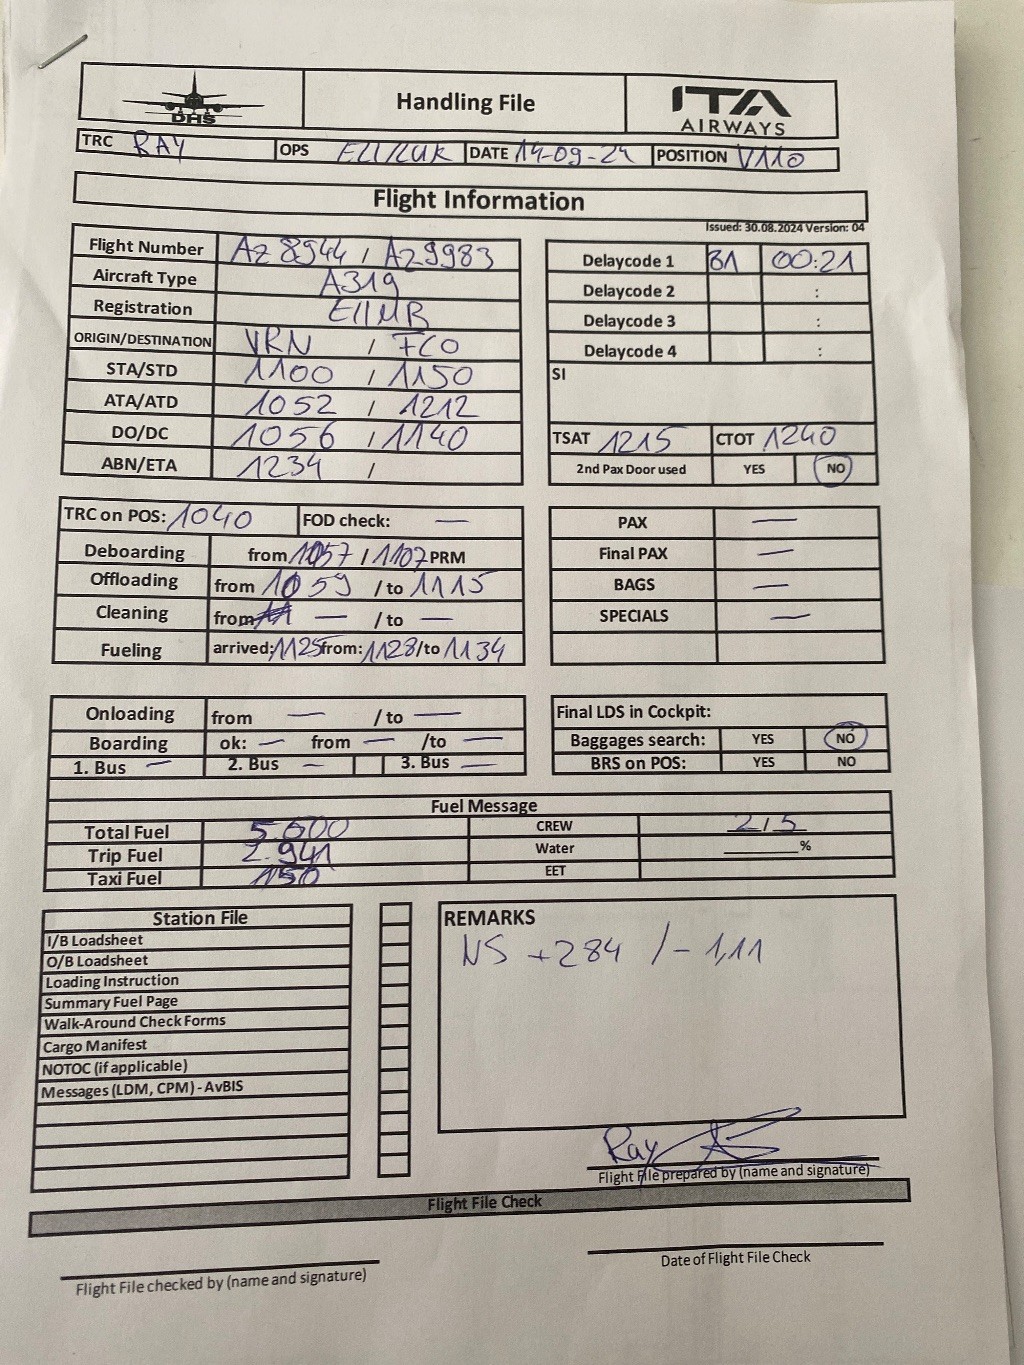 DHS
Handling File
ITA
AIRWAYS
TRC RAY OPS DATE 14-09-24 POSITION V110
Flight Information
Issued: 30.08.2024 Version: 04
Flight Number AZ 8944 / AZ9983
Aircraft Type A319
Registration EIIMB
ORIGIN/DESTINATION VRN / FCO
STA/STD 1100 / 1150
ATA/ATD 1052 / 1212
DO/DC 1056 / 1140
ABN/ETA 1234 /
Delaycode 1 81 00:21
Delaycode 2 :
Delaycode 3 :
Delaycode 4 :
SI
TSAT 1215 CTOT 1240
2nd Pax Door used YES NO
TRC on POS: 1040 FOD check: —
Deboarding from 1057 / 1107 PRM
Offloading from 1059 / to 1115
Cleaning from — / to —
Fueling arrived: 1125 from: 1128 /to 1134
PAX —
Final PAX —
BAGS —
SPECIALS —
Onloading from — / to —
Boarding ok: — from — /to —
1. Bus — 2. Bus — 3. Bus —
Final LDS in Cockpit:
Baggages search: YES NO
BRS on POS: YES NO
Fuel Message
Total Fuel 5.600 CREW 2/5
Trip Fuel 2.941 Water ______%
Taxi Fuel 150 EET
Station File
I/B Loadsheet
O/B Loadsheet
Loading Instruction
Summary Fuel Page
Walk-Around Check Forms
Cargo Manifest
NOTOC (if applicable)
Messages (LDM, CPM) - AvBIS
REMARKS
NS +284 / -1,11
Ray
Flight File prepared by (name and signature)
Flight File Check
Flight File checked by (name and signature)
Date of Flight File Check